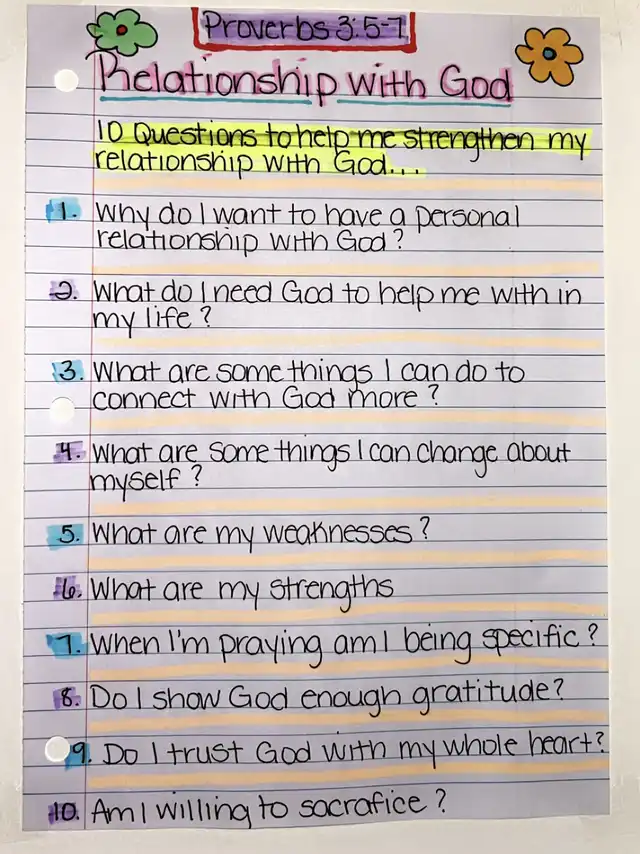 Proverbs 3:5-7
Relationship with God
10 Questions to help me strengthen my
relationship with God...
1. Why do I want to have a personal
relationship with God?
2. What do I need God to help me with in
my life?
3. What are some things I can do to
connect with God more?
4. What are some things I can change about
myself?
5. What are my weaknesses?
6. What are my strengths
7. When I'm praying am I being specific?
8. Do I show God enough gratitude?
9. Do I trust God with my whole heart?
10. Am I willing to sacrafice?